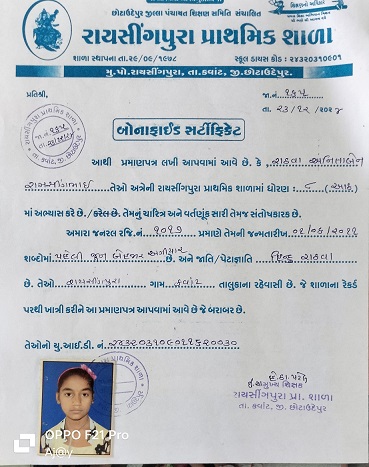 છોટાઉદેપુર જીલ્લા પંચાયત શિક્ષણ સમિતિ સંચાલિત
રાયસીંગપુરા પ્રાથમિક શાળા
શાળા સ્થાપના તા.૨૯/૦૯/૧૯૭૮ સ્કૂલ ડાયસ કોડ : ૨૪૩૨૦૩૧૦૯૦૧
મુ.પો.રાયસીંગપુરા, તા.કવાંટ, જી.છોટાઉદેપુર.
પ્રતિશ્રી, જા.નં. ૧૬૫
તા. ૨૩/૧૨/૨૦૨૪
બોનાફાઈડ સર્ટીફિકેટ
આથી પ્રમાણપત્ર લખી આપવામાં આવે છે કે, રાઠવા અનિતાબેન
રાયસીંગભાઈ તેઓ અત્રેની રાયસીંગપુરા પ્રાથમિક શાળામાં ધોરણ : ૮ (આઠ)
માં અભ્યાસ કરે છે./કરેલ છે. તેમનું ચારિત્ર અને વર્તણૂંક સારી તેમજ સંતોષકારક છે.
અમારા જનરલ રજિ.નં. ૧૦૧૭ પ્રમાણે તેમની જન્મતારીખ ૦૧/૦૬/૨૦૧૧
શબ્દોમાં પહેલી જૂન બે હજાર અગિયાર છે. અને જાતિ/પેટાજ્ઞાતિ હિન્દુ રાઠવા
છે. તેઓ રાયસીંગપુરા ગામ કવાંટ તાલુકાના રહેવાસી છે. જે શાળાના રેકર્ડ
પરથી ખાત્રી કરીને આ પ્રમાણપત્ર આપવામાં આવે છે જે બરાબર છે.
તેઓનો યુ.આઈ.ડી. નં. ૨૪૩૨૦૩૧૦૯૦૧૧૬૨૦૦૩૦
મુખ્ય શિક્ષક
રાયસીંગપુરા પ્રા. શાળા
તા. કવાંટ, જી. છોટાઉદેપુર
OPPO F21 Pro
Aj@y